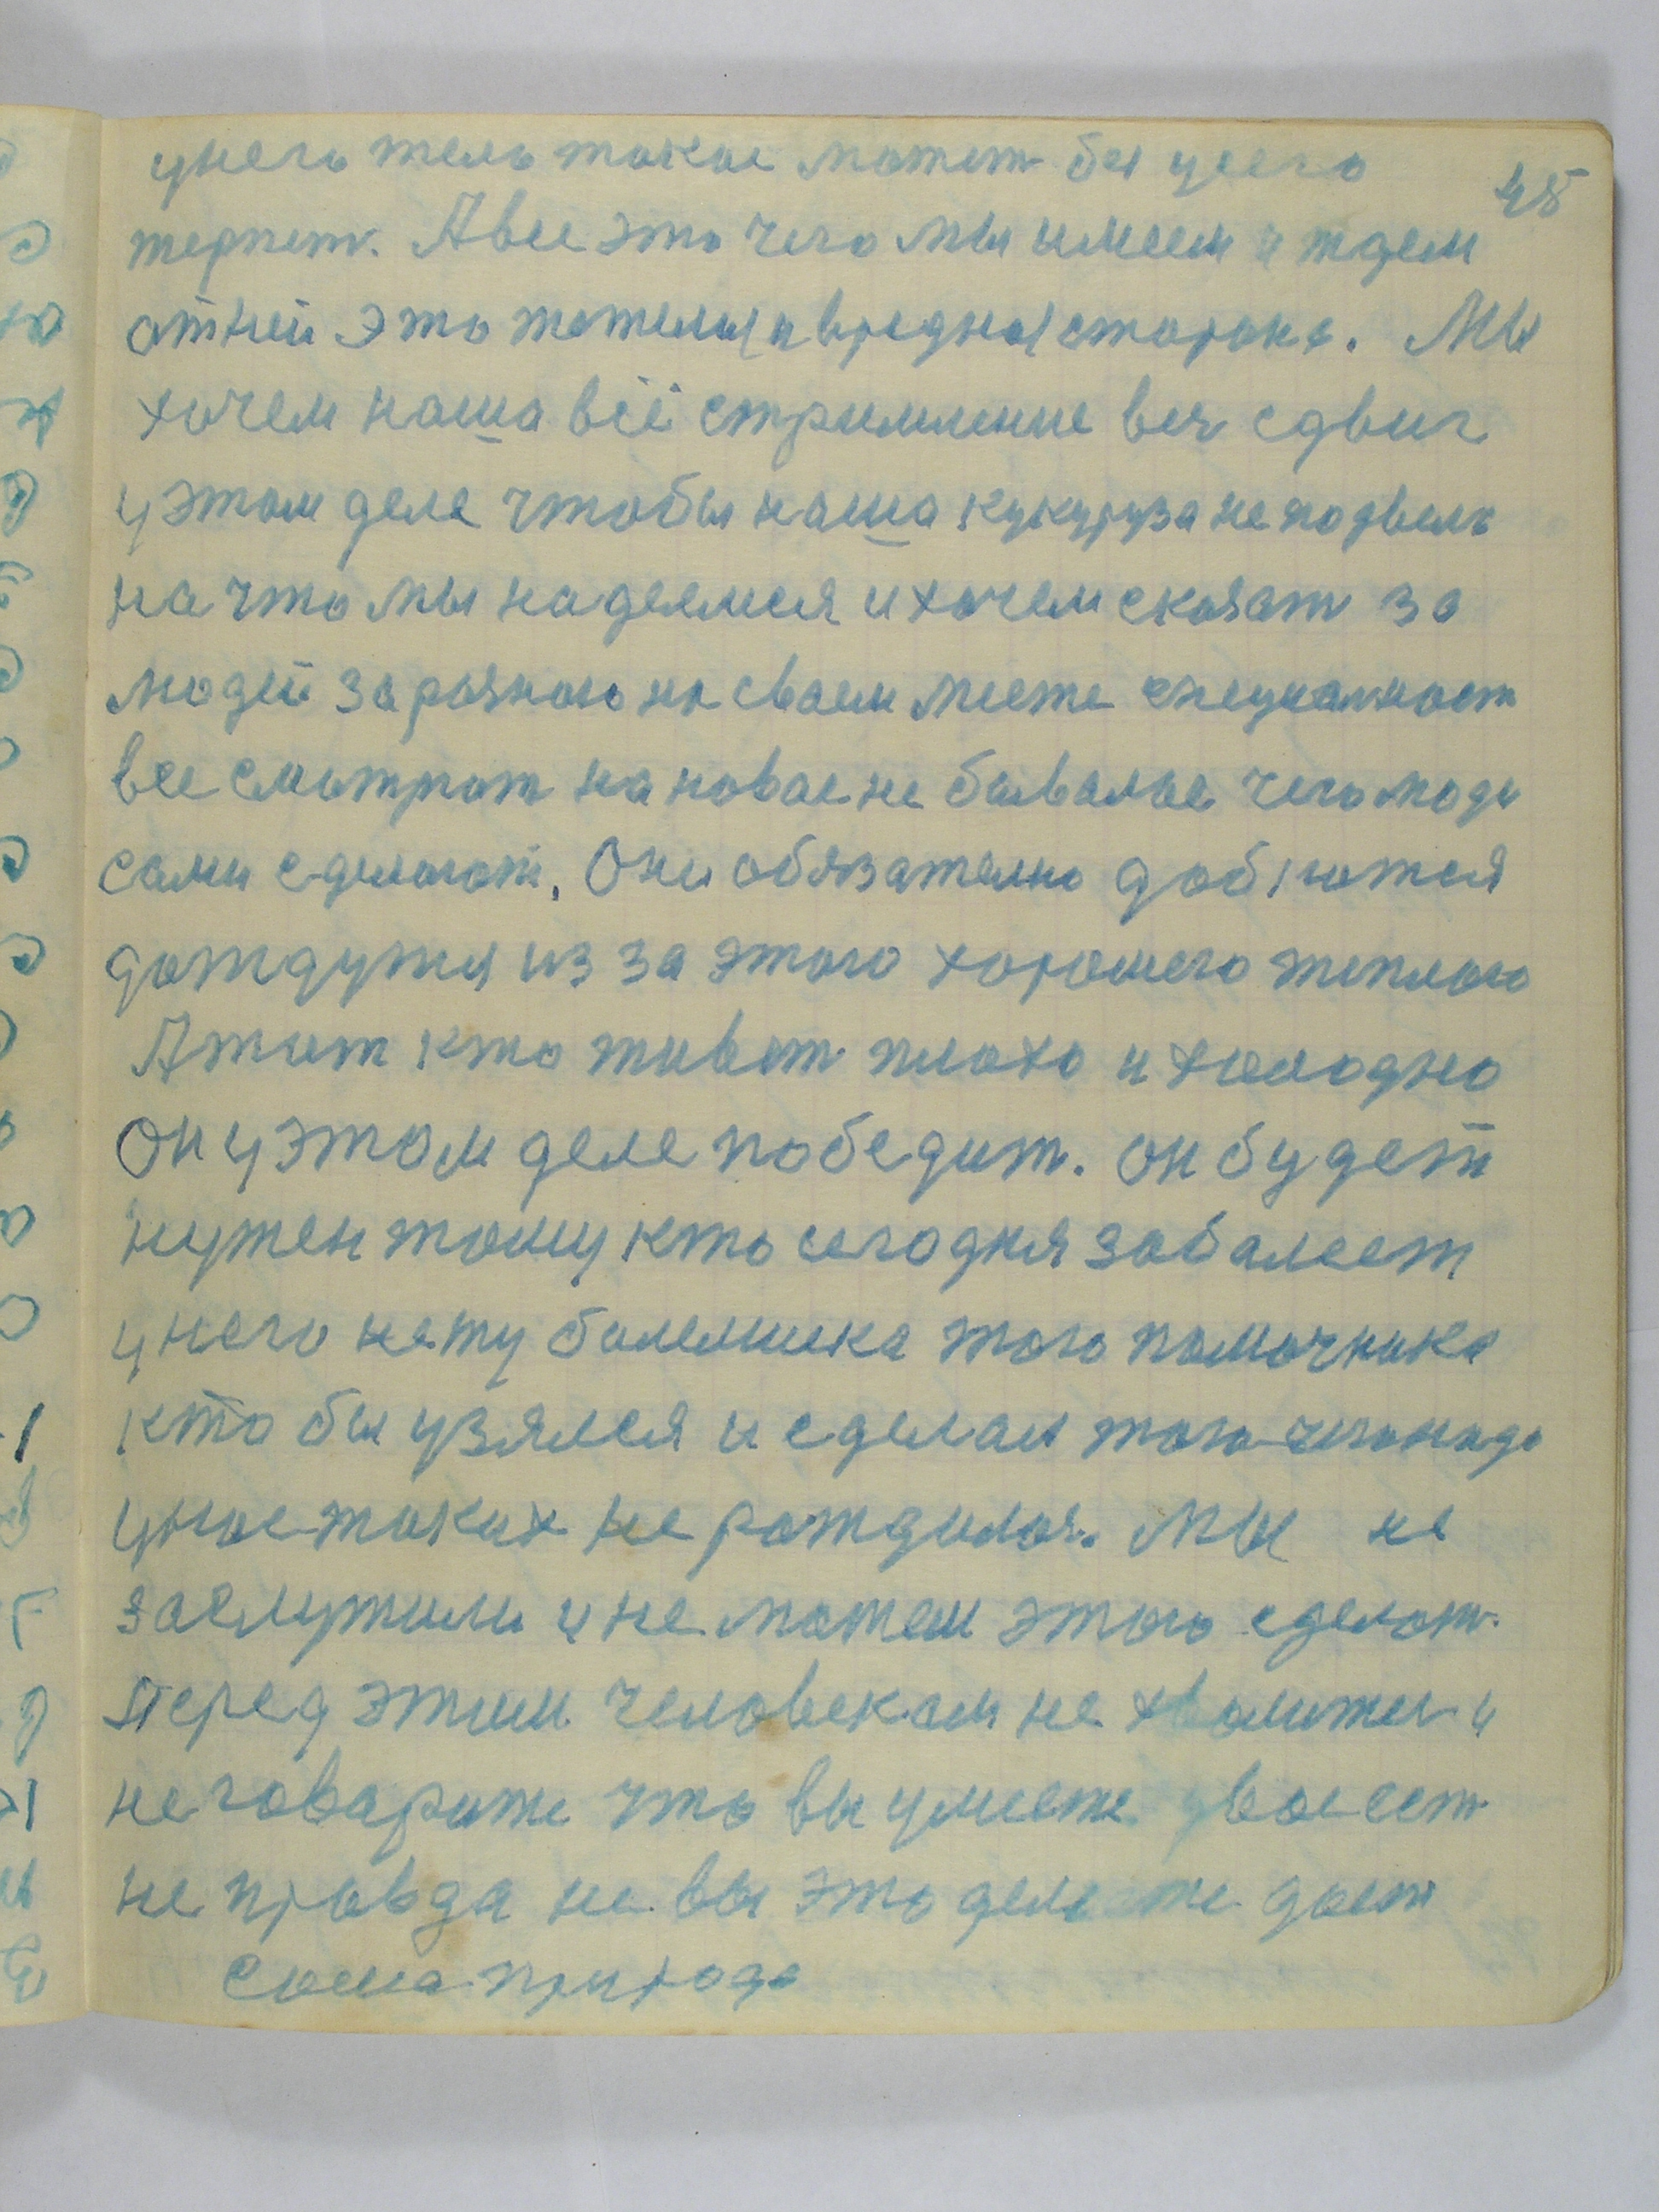 45
унего тело такоеможет бы усего
терпет. А все это чего мы имеем и ждем
от ней это тежелыя и вредная сторона. Мы
хочем наша всё стримление вся сдвиг
у этом деле чтобы наша кукуруза не подвела
на что мы надеямся и хочем сказат за
людей за разного на сваем месте специалност
все смотрят на новае не бывалое чего люди
сами сделают. Они обязателно добютюся
дождутся из за этого хорошего теплого
А тот кто живет плохо и холодно
Он у этом деле победит. он будет
нужен тому кто сегодня заболеет
у него нету болельшика того помочника
кто бы узялся и сделал того чего надо
у нас таких не рождилос. Мы не
заслужили и не можем этого сделат.
Перед этим человекам не хвалитес и
не говарите что вы умеете у вас ест
не правда не вы это делаете дает
сама природа